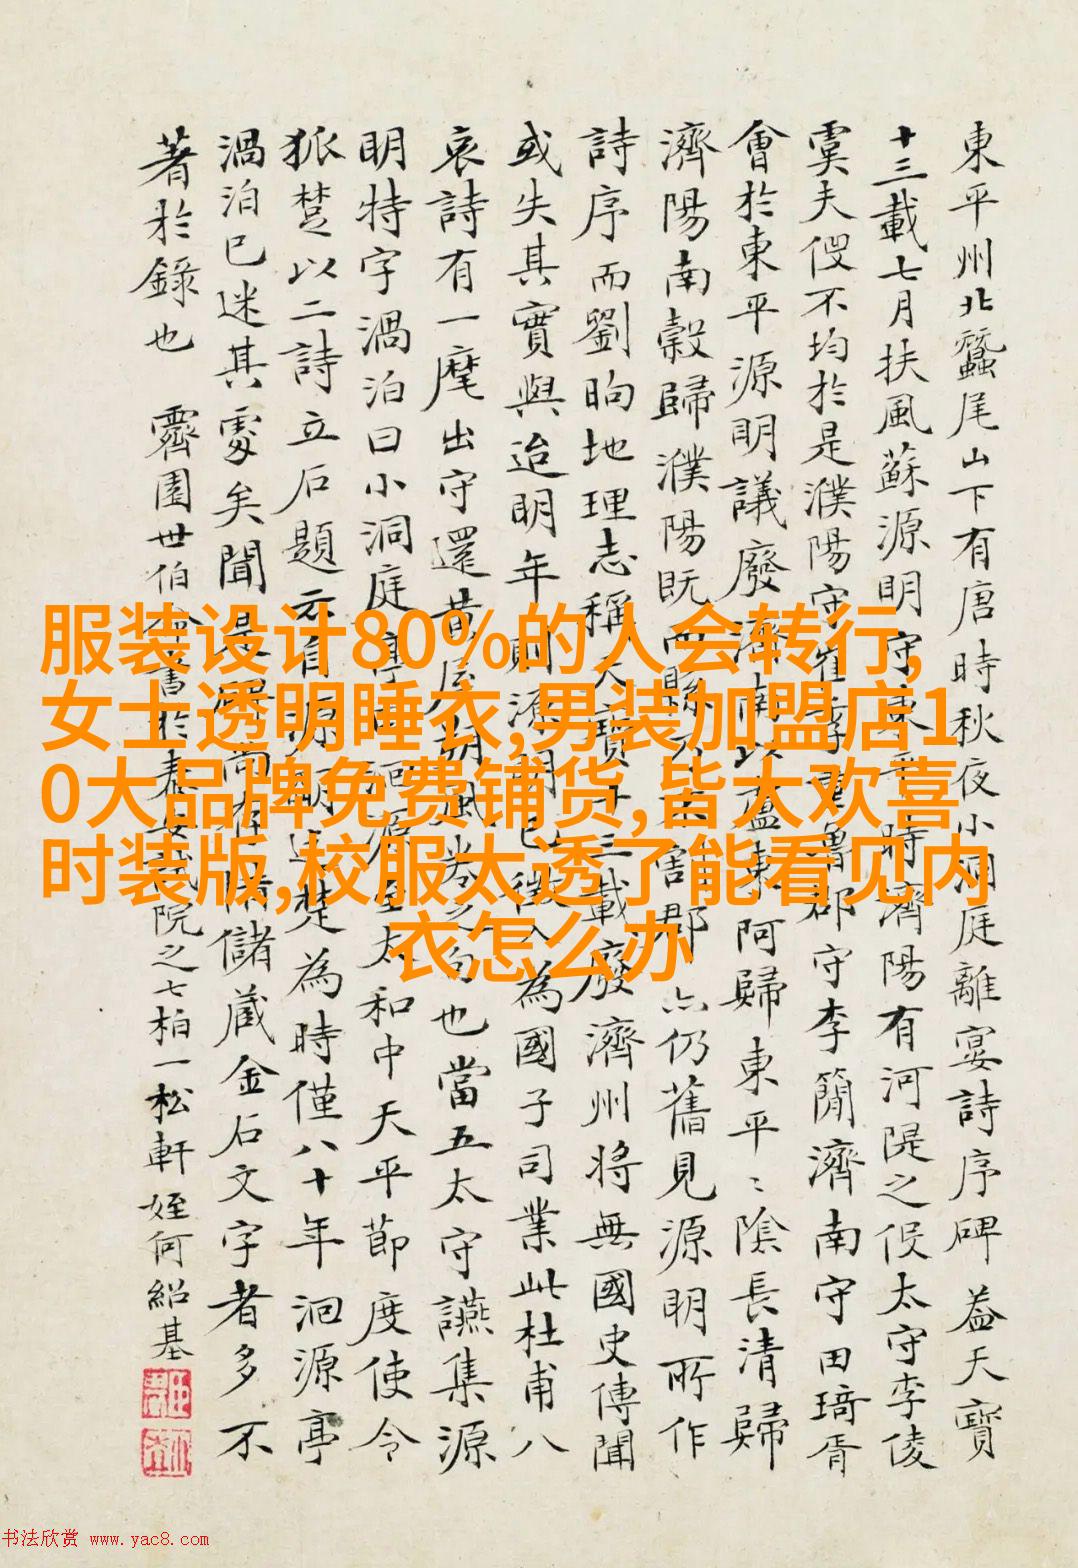 東平州北蠶尾山下有唐時秋夜小洞庭離宴詩序碑蓋天寶
十三載七月扶風蘇源明守東平時濟陽有河隄之役太守李倰
虞夫役不均於是濮陽守崔季重魯郡守李簡濟南守田琦胥
會於東平源明議廢濟南以盧東阿歸東平〻陰長清歸
濟陽南穀歸濮陽既而縣害郡亦仍舊見源明所作
詩序而劉昫地理志稱天寶十三載廢濟州將無國史傳聞
或失其實與迨明年則源明已徵入為國子司業此杜甫八
哀詩有一麾出守還黃屋朔風卷之句也當五太守讌集源
明特字渦泊曰小洞庭太和中天平節度使令
狐楚以二詩立石題元有源明楚為時僅八十年洄源亭
渦泊已迷其處矣聞是儲藏金石文字者多不
著於錄也 霽園世伯命書於泰安試院之七柏一松軒姪何紹基
服装设计80%的人会转行,
女士透明睡衣,男装加盟店1
0大品牌免费铺货,皆大欢喜
时装版,校服太透了能看见内
衣怎么办
书法欣赏 www.yac8.com